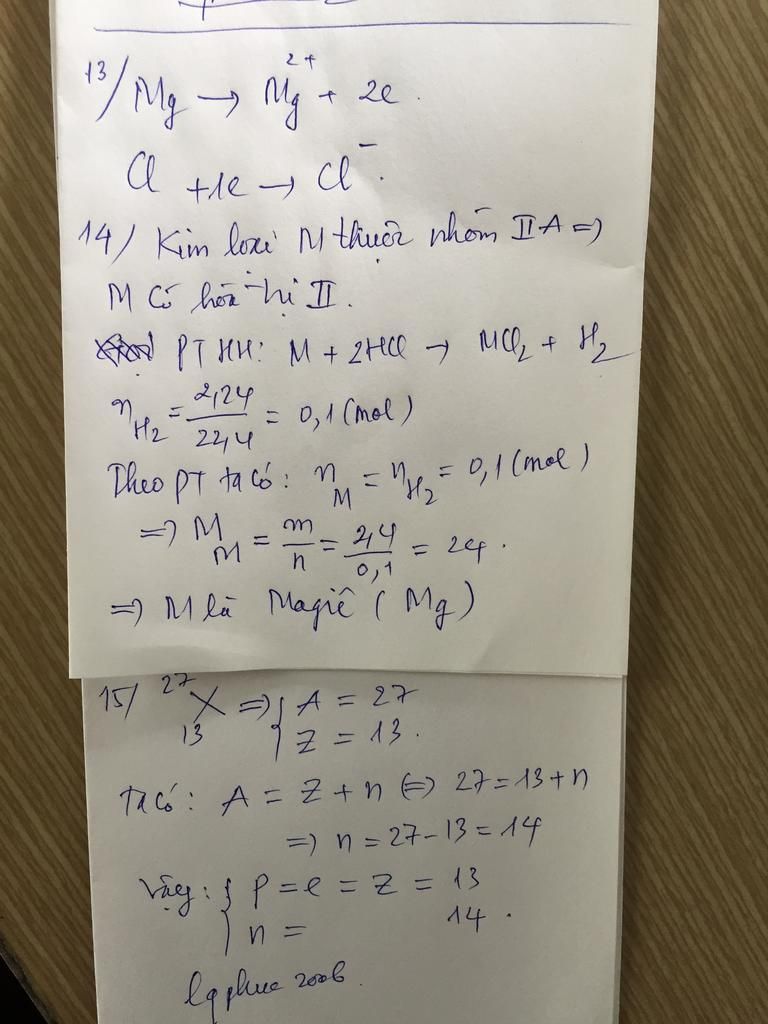 13/ Mg → Mg²⁺ + 2e.
Cl +1e → Cl⁻.
14/ Kim loại M thuộc nhóm IIA =>
M có hóa trị II.
PTHH: M + 2HCl → MCl₂ + H₂
n_H₂ = 2,24/22,4 = 0,1 (mol)
Theo PT ta có: n_M = n_H₂ = 0,1 (mol)
=> M_M = m/n = 2,4/0,1 = 24.
=> M là Magiê (Mg)
15/ ²⁷₁₃X => { A = 27
Z = 13.
Ta có: A = Z + n <=> 27 = 13 + n
=> n = 27 - 13 = 14
Vậy: { p = e = Z = 13
n = 14.
lqphuc2006